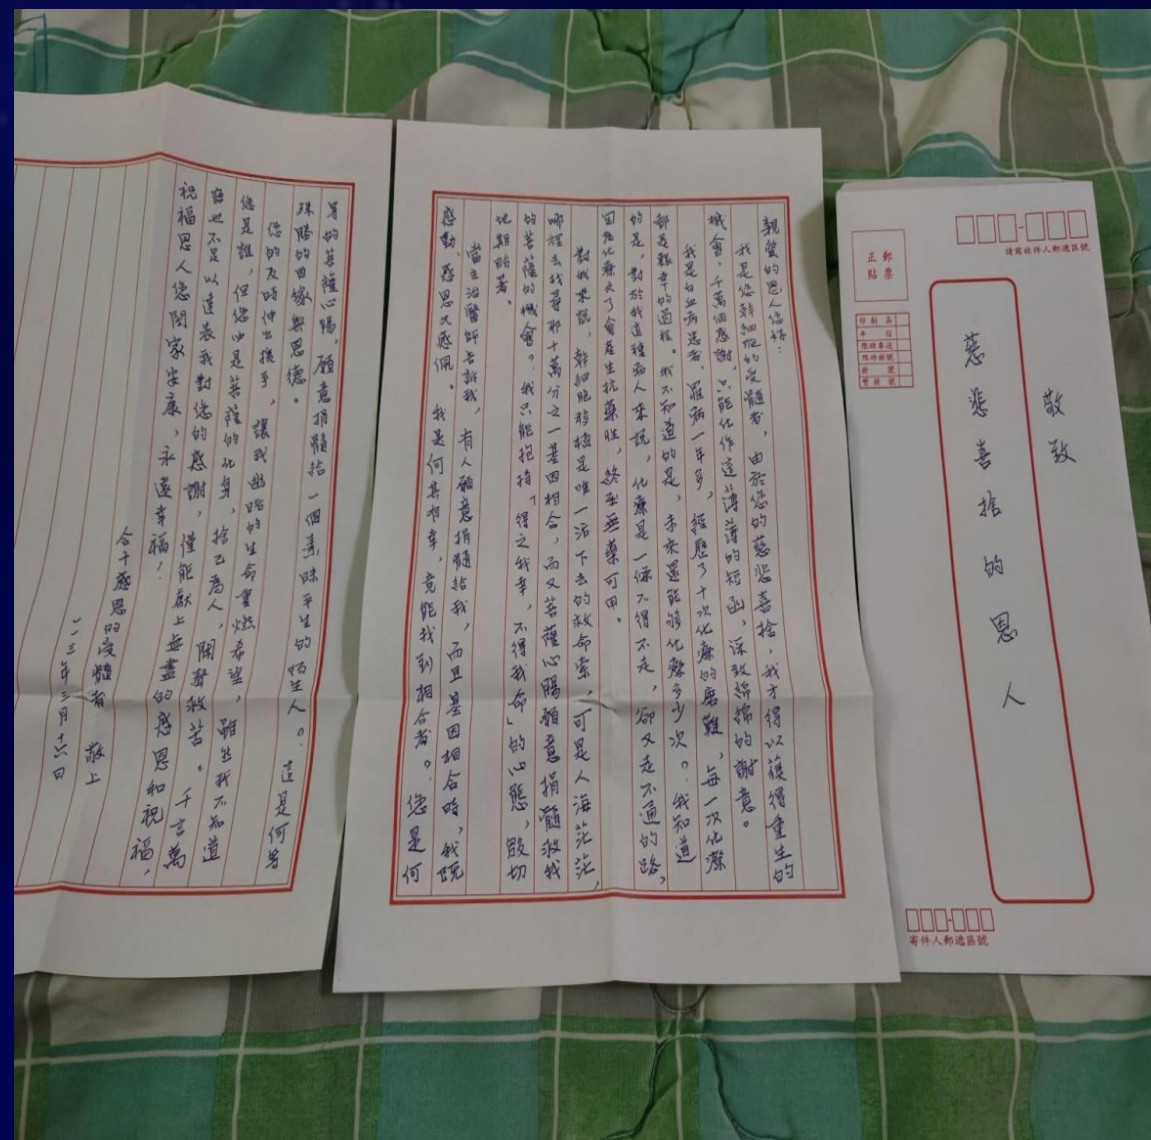 親愛的恩人您好：
我是您幹細胞的受髓者，由於您的慈悲喜捨，我才得以獲得重生的
機會。千萬個感謝，只能化作這薄薄的短函，深致綿綿的謝意。
我是白血病患者，罹病一年多，經歷了十次化療的磨難，每一次化療
都是艱辛的過程。我不知道的是，未來還能夠化療多少次。我知道
的是，對於我這種病人來說，化療是一條不得不走，卻又走不通的路，
因為化療久了會產生抗藥性，終至無藥可用。
對我來說，幹細胞移植是唯一活下去的救命索，可是人海茫茫，
哪裡去找尋那十萬分之一基因相合，而又菩薩心腸願意捐髓救我
的菩薩的機會。我只能抱持「得之我幸，不得我命」的心態，殷切
地期盼著。
當主治醫師告訴我，有人願意捐髓給我，而且基因相合時，我既
感動、感恩又感佩。我是何其有幸，竟能找到相合者。您是何
等的菩薩心腸，願意捐髓給一個素昧平生的陌生人。這是何等
殊勝的因緣與恩德。
您的及時伸出援手，讓我幽暗的生命重燃希望，雖然我不知道
您是誰，但您必是菩薩的化身，捨己為人，聞聲救苦。千言萬
語也不足以達表我對您的感謝，僅能獻上無盡的感恩和祝福，
祝福恩人您闔家安康，永遠幸福！
合十感恩的受髓者 敬上
一一三年三月十六日
敬致
慈悲喜捨的恩人
請寫收件人郵遞區號
正郵
貼票
印刷品
平信
限時專送
限時掛號
掛號
雙掛號
寄件人郵遞區號